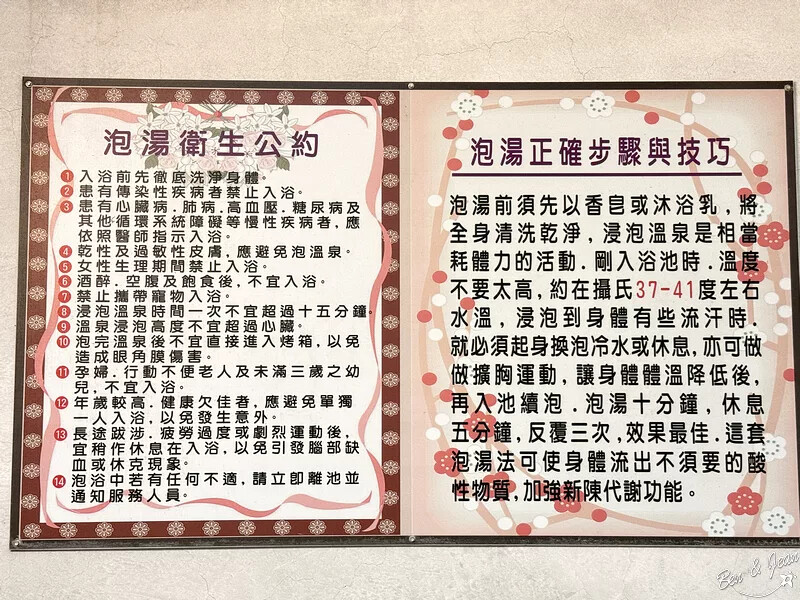 泡湯衛生公約
1 入浴前先徹底洗淨身體。
2 患有傳染性疾病者禁止入浴。
3 患有心臟病.肺病.高血壓.糖尿病及
其他循環系統障礙等慢性疾病者,應
依照醫師指示入浴。
4 乾性及過敏性皮膚,應避免泡溫泉。
5 女性生理期間禁止入浴。
6 酒醉.空腹及飽食後,不宜入浴。
7 禁止攜帶寵物入浴。
8 浸泡溫泉時間一次不宜超過十五分鐘。
9 溫泉浸泡高度不宜超過心臟。
10 泡完溫泉後不宜直接進入烤箱,以免
造成眼角膜傷害。
11 孕婦.行動不便老人及未滿三歲之幼
兒,不宜入浴。
12 年歲較高.健康欠佳者,應避免單獨
一人入浴,以免發生意外。
13 長途跋涉.疲勞過度或劇烈運動後,
宜稍作休息在入浴,以免引發腦部缺
血或休克現象。
14 泡浴中若有任何不適,請立即離池並
通知服務人員。
泡湯正確步驟與技巧
泡湯前須先以香皂或沐浴乳,將
全身清洗乾淨,浸泡溫泉是相當
耗體力的活動.剛入浴池時.溫度
不要太高,約在攝氏37-41度左右
水溫,浸泡到身體有些流汗時.
就必須起身換泡冷水或休息,亦可做
做擴胸運動,讓身體體溫降低後,
再入池續泡.泡湯十分鐘,休息
五分鐘,反覆三次,效果最佳.這套
泡湯法可使身體流出不須要的酸
性物質,加強新陳代謝功能。
Ben & Jean